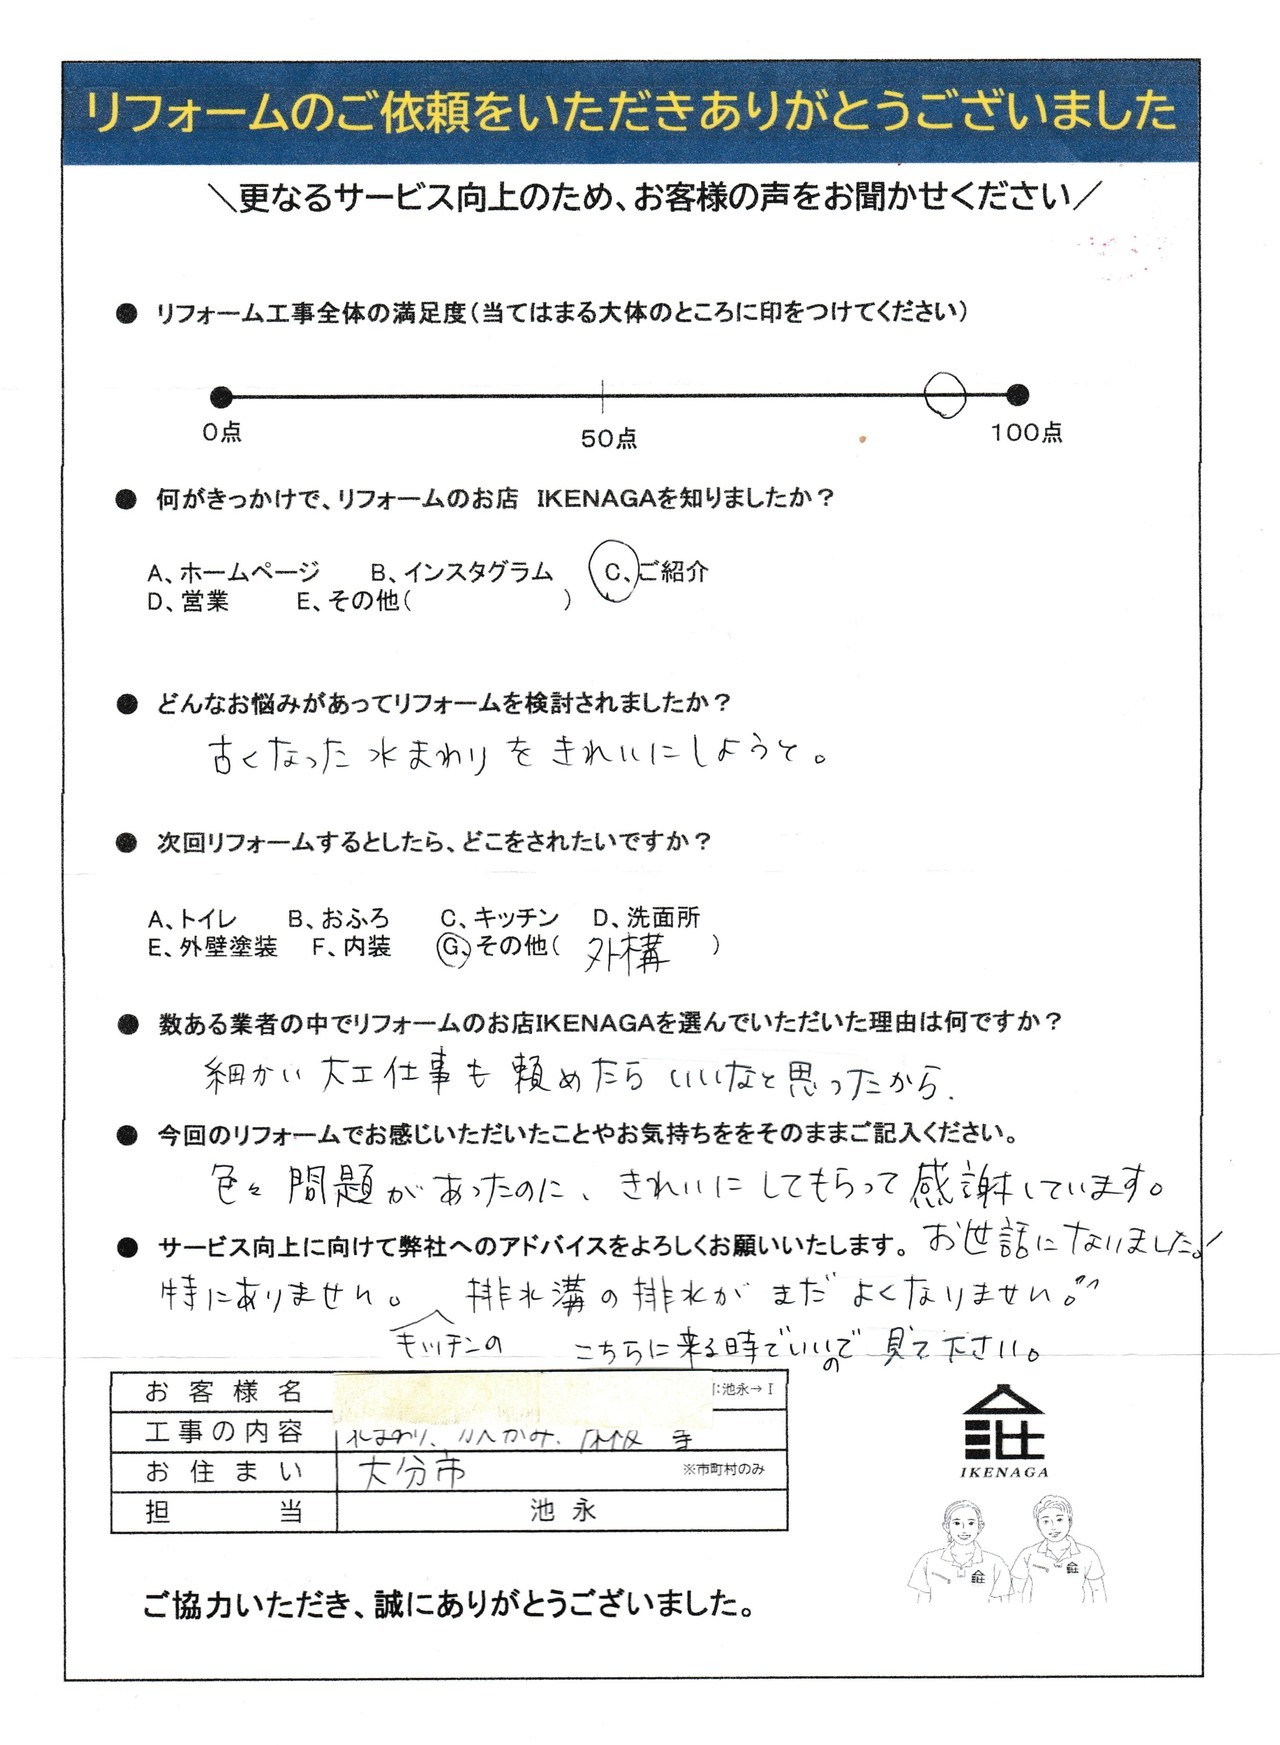 リフォームのご依頼をいただきありがとうございました
＼更なるサービス向上のため、お客様の声をお聞かせください／
● リフォーム工事全体の満足度（当てはまる大体のところに印をつけてください）
0点 50点 100点
● 何がきっかけで、リフォームのお店 IKENAGAを知りましたか？
A、ホームページ B、インスタグラム C、ご紹介
D、営業 E、その他（ ）
● どんなお悩みがあってリフォームを検討されましたか？
古くなった水まわりをきれいにしようと。
● 次回リフォームするとしたら、どこをされたいですか？
A、トイレ B、おふろ C、キッチン D、洗面所
E、外壁塗装 F、内装 G、その他（ 外構 ）
● 数ある業者の中でリフォームのお店IKENAGAを選んでいただいた理由は何ですか？
細かい大工仕事も頼めたらいいなと思ったから.
● 今回のリフォームでお感じいただいたことやお気持ちををそのままご記入ください。
色々問題があったのに、きれいにしてもらって感謝しています。
お世話になりました!
● サービス向上に向けて弊社へのアドバイスをよろしくお願いいたします。
特にありません。 排水溝の排水がまだよくなりません。
キッチンの こちらに来る時でいいので見て下さい。
お客様名 :池永→I
工事の内容 水まわり、かべがみ、床板 等
お住まい 大分市 ※市町村のみ
担当 池永
IKENAGA
ご協力いただき、誠にありがとうございました。